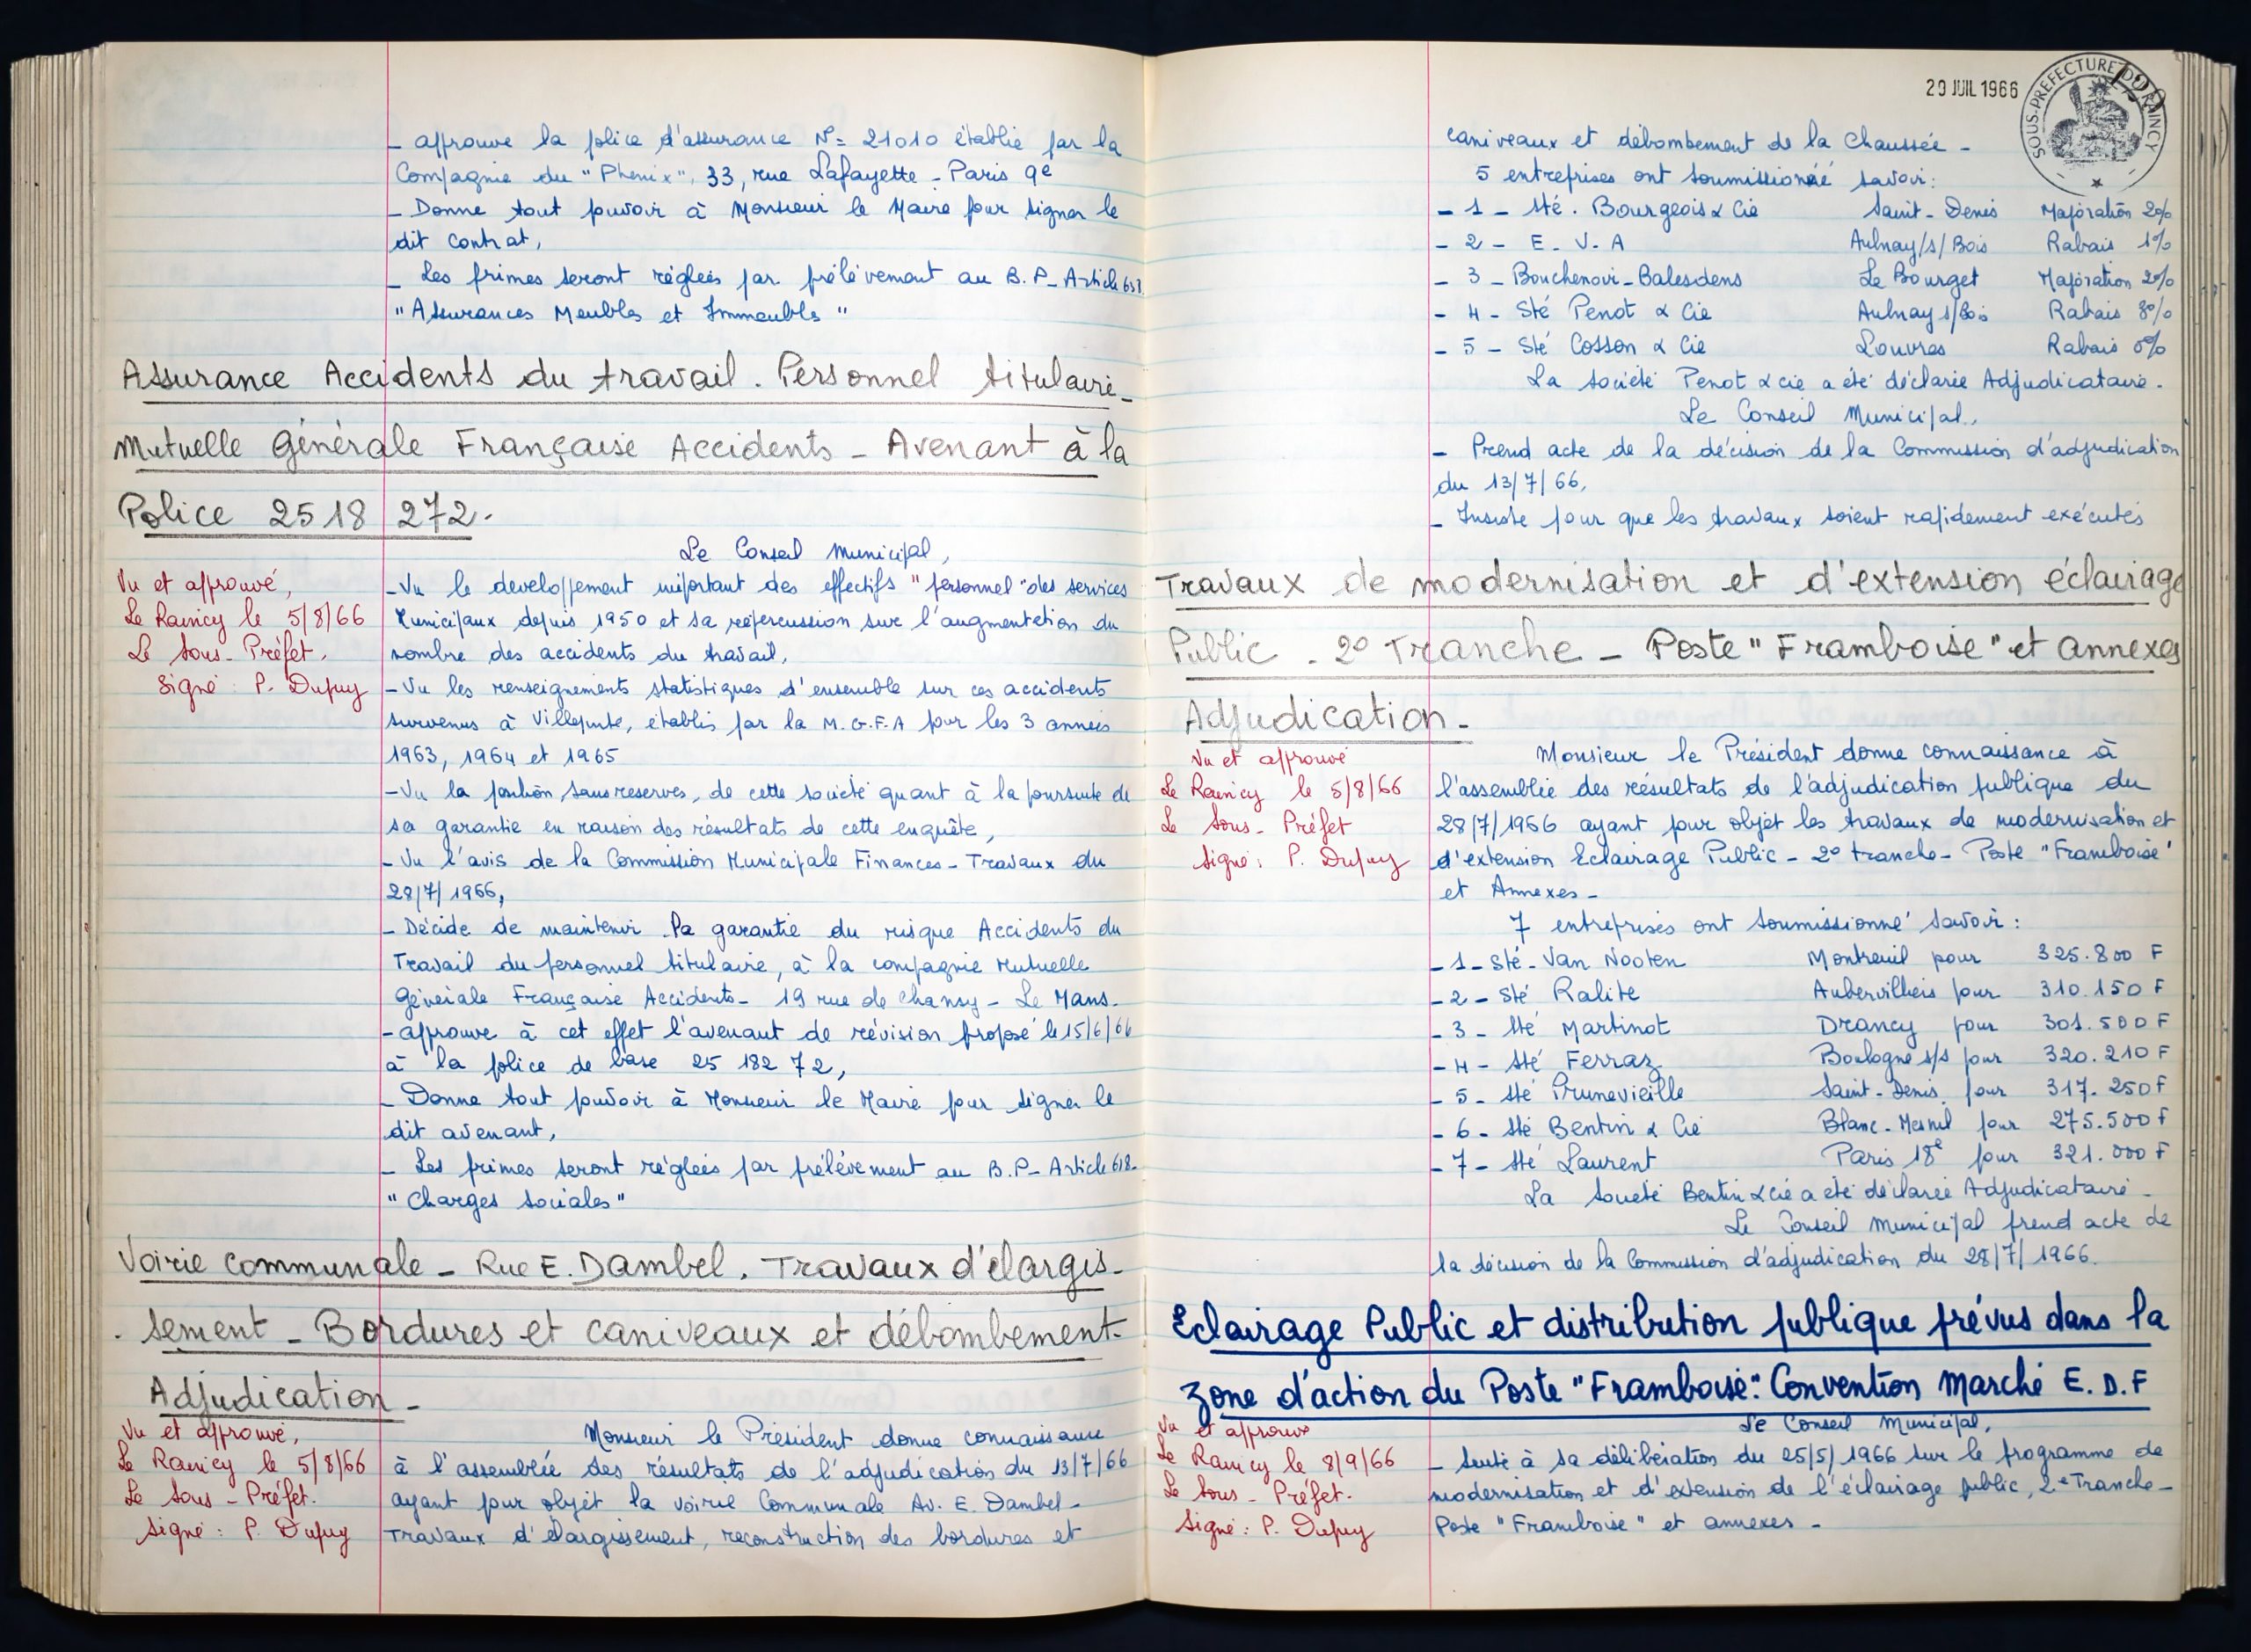 - approuve la police d'assurance N= 21010 établie par la
Compagnie du "Phenix", 33, rue Lafayette - Paris 9e
- Donne tout pouvoir à Monsieur le Maire pour signer le
dit contrat,
- Les primes seront réglées par prélèvement au B.P_ Article 631
"Assurances Meubles et Immeubles"
Assurance Accidents du travail. Personnel titulaire_
Mutuelle Générale Française Accidents - Avenant à la
Police 2518 272.
Le Conseil Municipal,
Vu et approuvé,
Le Raincy le 5/8/66
Le Sous-Préfet.
Signé : P. Dupuy
- Vu le developpement important des effectifs "personnel" des services
Municipaux depuis 1950 et sa repercussion sur l'augmentation du
nombre des accidents du travail,
- Vu les renseignements statistiques d'ensemble sur ces accidents
survenus à Villepinte, établis par la M.G.F.A pour les 3 années
1963, 1964 et 1965
- Vu la position, sans reserves, de cette société quant à la poursuite de
sa garantie en raison des résultats de cette enquête,
- Vu l'avis de la Commission Municipale Finances - Travaux du
28/7/1966,
- Décide de maintenir la garantie du risque Accidents du
Travail du personnel titulaire, à la compagnie Mutuelle
Générale Française Accidents - 19 rue de Chanzy - Le Mans.
- approuve à cet effet l'avenant de révision proposé le 15/6/66
à la police de base 25 182 72,
- Donne tout pouvoir à Monsieur le Maire pour signer le
dit avenant,
- Les primes seront réglées par prélèvement au B.P_ Article 618.
"Charges sociales"
Voirie communale - Rue E. Dambel. Travaux d'élargis-
sement - Bordures et caniveaux et débombement.
Adjudication -
Vu et approuvé,
Le Raincy le 5/8/66
Le Sous-Préfet.
Signé : P. Dupuy
Monsieur le Président donne connaissance
à l'assemblée des résultats de l'adjudication du 13/7/66
ayant pour objet la voirie Communale Av. E. Dambel -
Travaux d'élargissement, reconstruction des bordures et
29 JUIL 1966
SOUS-PRÉFECTURE DU RAINCY
caniveaux et débombement de la Chaussée -
5 entreprises ont soumissionné savoir:
- 1 - Sté. Bourgeois & Cie Saint-Denis Majoration 20%
- 2 - E. V. A Aulnay/s/Bois Rabais 1%
- 3 - Bouchenovi-Balesdens Le Bourget Majoration 20%
- 4 - Sté Penot & Cie Aulnay s/Bois Rabais 8%
- 5 - Sté Cosson & Cie Louvres Rabais 0%
La société Penot & cie a été déclarée Adjudicataire.
Le Conseil Municipal,
- Prend acte de la décision de la Commission d'adjudication
du 13/7/66,
- Insiste pour que les travaux soient rapidement exécutés
Travaux de modernisation et d'extension éclairage
Public - 2° Tranche - Poste "Framboise" et annexes
Adjudication -
Vu et approuvé
Le Raincy le 5/8/66
Le Sous-Préfet
Signé : P. Dupuy
Monsieur le Président donne connaissance à
l'assemblée des résultats de l'adjudication publique du
28/7/1966 ayant pour objet les travaux de modernisation et
d'extension Eclairage Public - 2° tranche - Poste "Framboise"
et Annexes -
7 entreprises ont soumissionné savoir :
- 1 - Sté - Van Nooten Montreuil pour 325.800 F
- 2 - Sté Ralite Aubervilliers pour 310.150 F
- 3 - Sté Martinot Drancy pour 301.500 F
- 4 - Sté Ferraz Boulogne s/s pour 320.210 F
- 5 - Sté Prunevieille Saint-Denis pour 317.250 F
- 6 - Sté Bentin & Cie Blanc-Mesnil pour 275.500 F
- 7 - Sté Laurent Paris 18e pour 321.000 F
La Société Bentin & cie a été déclarée Adjudicataire -
Le Conseil Municipal prend acte de
la décision de la Commission d'adjudication du 28/7/1966.
Eclairage Public et distribution publique prévus dans la
zone d'action du Poste "Framboise": Convention Marché E.D.F
Vu et approuvé
Le Raincy le 8/9/66
Le Sous-Préfet.
Signé : P. Dupuy
Le Conseil Municipal,
- Suite à sa délibération du 25/5/1966 sur le programme de
modernisation et d'extension de l'éclairage public, 2e Tranche -
Poste "Framboise" et annexes -